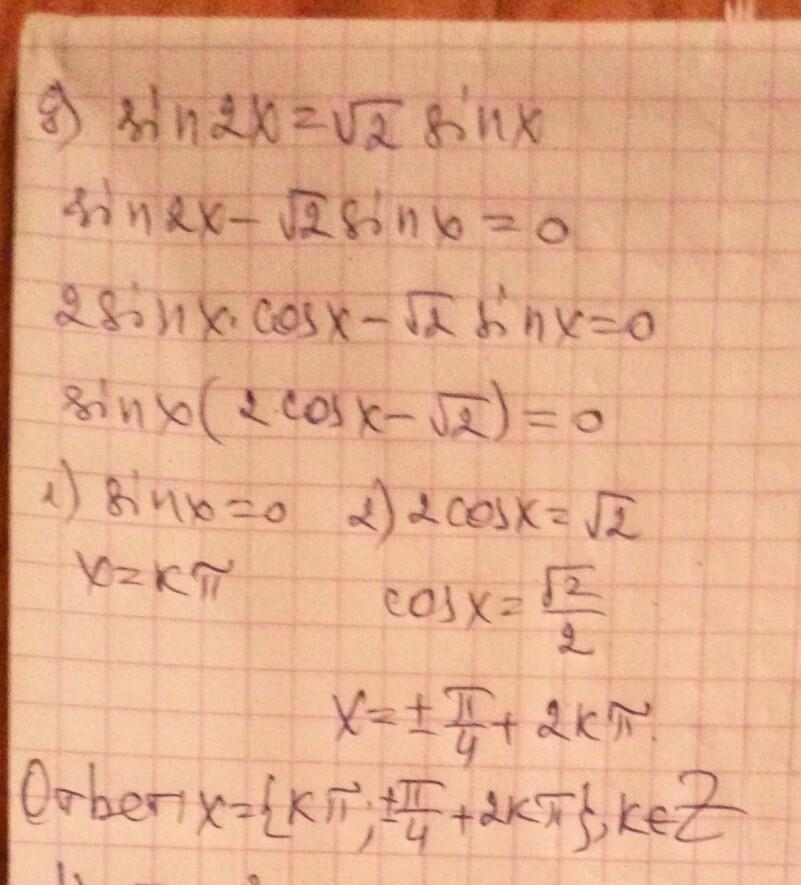 g) sin2x=√2 sinx
sin2x-√2sinx=0
2sinx·cosx-√2 sinx=0
sinx(2·cosx-√2)=0
1) sinx=0 2) 2cosx=√2
x=kπ cosx=√2/2
x=±π/4+2kπ.
Ответ x={kπ;±π/4+2kπ}, k∈Z